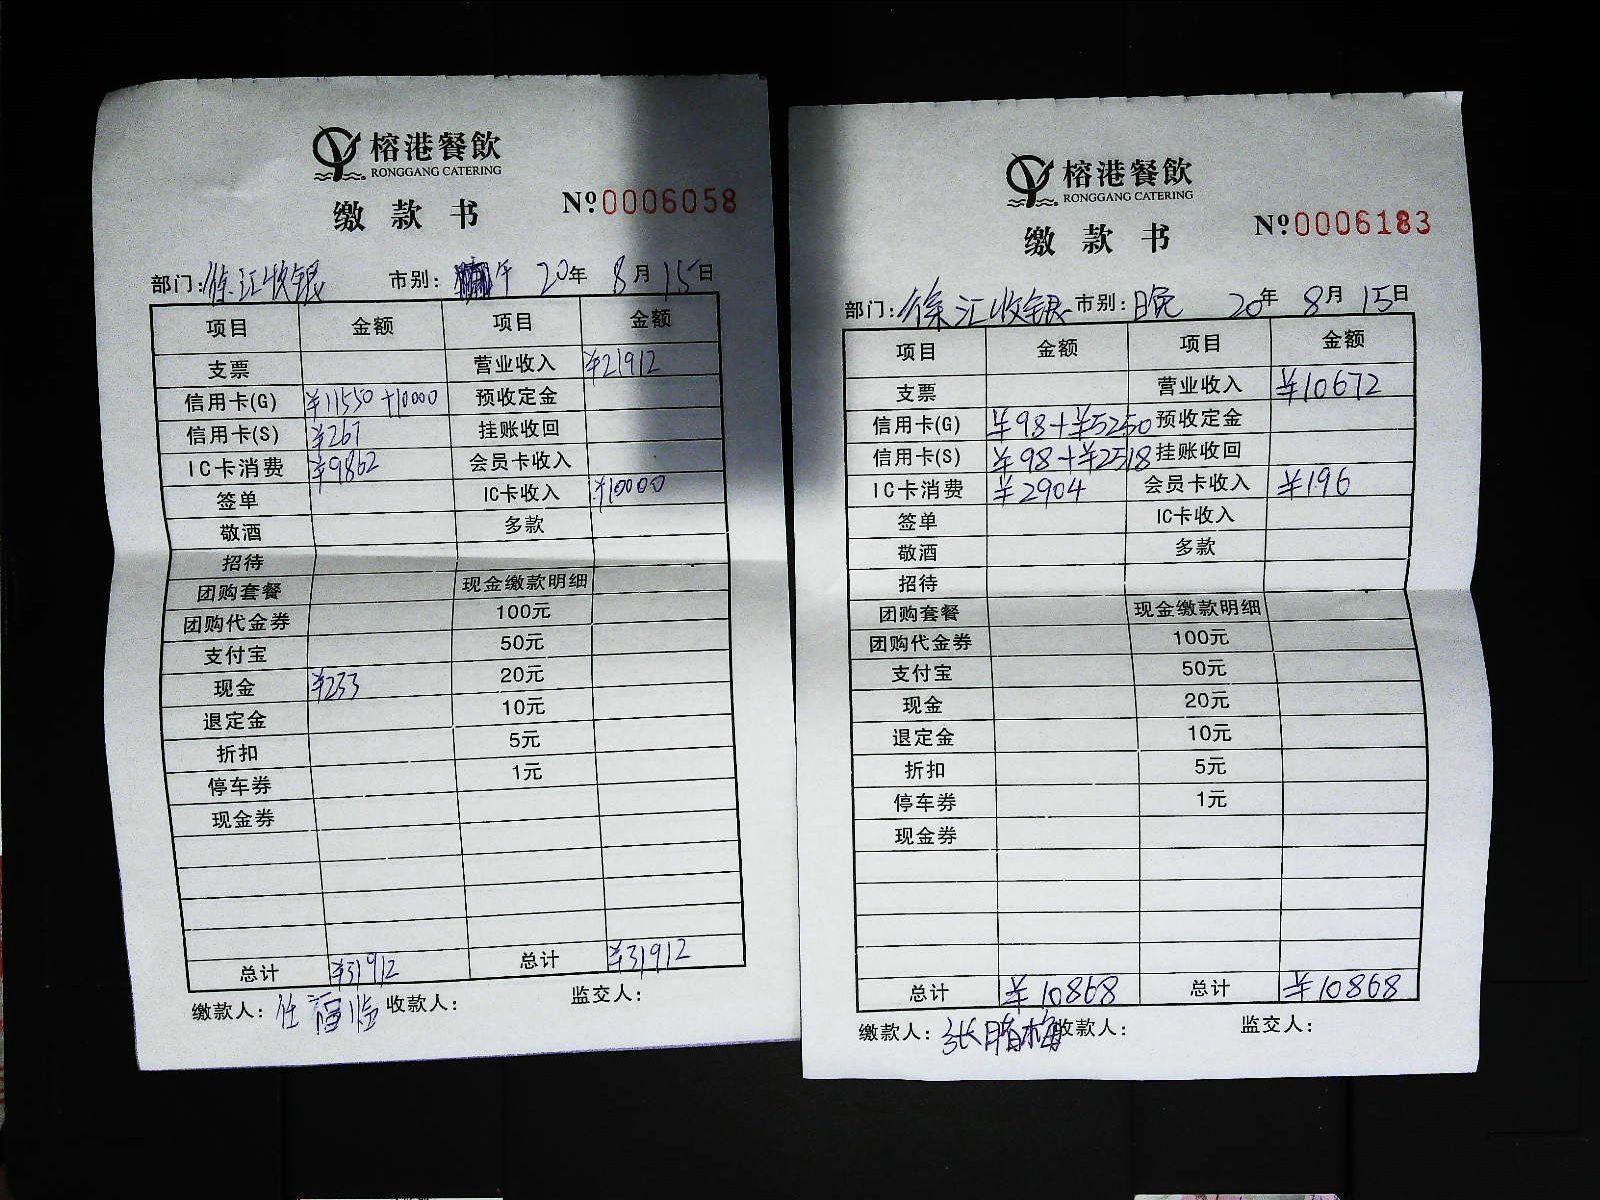 榕港餐飲
RONGGANG CATERING
缴款书 №0006058
部门:徐汇收银 市别: 午 20年 8月15日
项目 金额 项目 金额
支票 营业收入 ¥21912
信用卡(G) ¥11550+10000 预收定金
信用卡(S) ¥267 挂账收回
IC卡消费 ¥9862 会员卡收入
签单 IC卡收入 ¥10000
敬酒 多款
招待
团购套餐 现金缴款明细
团购代金券 100元
支付宝 50元
现金 ¥233 20元
退定金 10元
折扣 5元
停车券 1元
现金券
总计 ¥31912 总计 ¥31912
缴款人: 任 收款人: 监交人:
榕港餐飲
RONGGANG CATERING
缴款书 №0006183
部门:徐汇收银 市别:晚 20年 8月15日
项目 金额 项目 金额
支票 营业收入 ¥10672
信用卡(G) ¥98+¥5250 预收定金
信用卡(S) ¥98+¥2518 挂账收回
IC卡消费 ¥2904 会员卡收入 ¥196
签单 IC卡收入
敬酒 多款
招待
团购套餐 现金缴款明细
团购代金券 100元
支付宝 50元
现金 20元
退定金 10元
折扣 5元
停车券 1元
现金券
总计 ¥10868 总计 ¥10868
缴款人: 张 梅 收款人: 监交人: